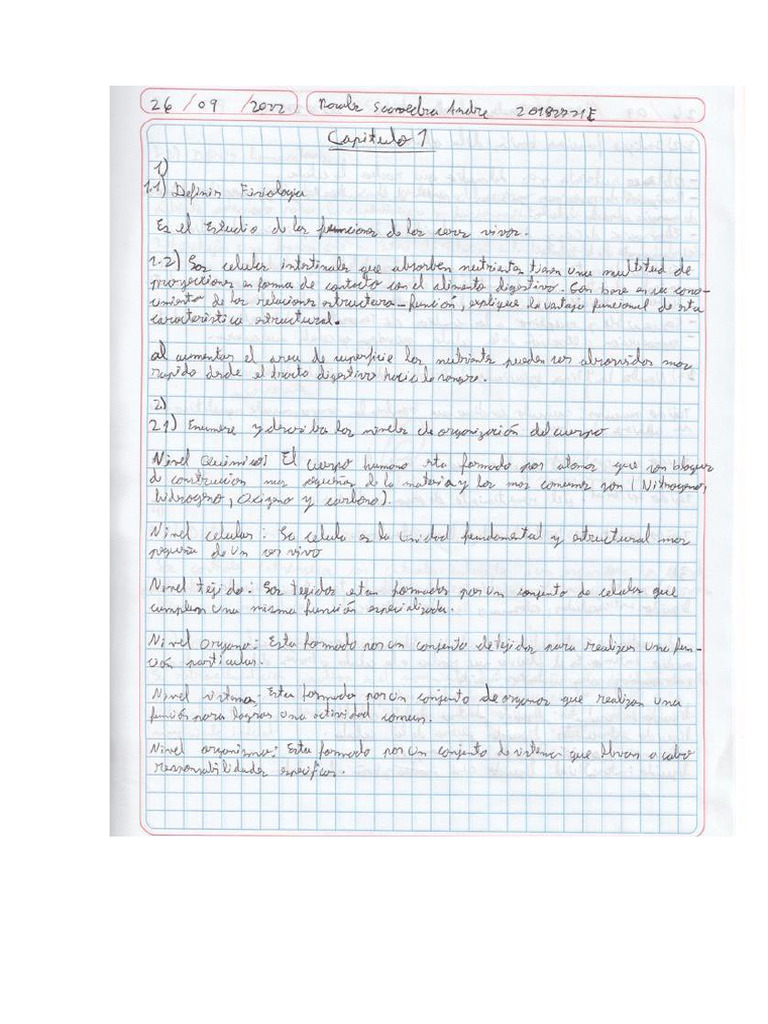 26 / 09 / 2022 Saavedra Andre
Capitulo 1
1)
1.1) Definir Fisiologia
Es el Estudio de las funciones de los seres vivos.
1.2) Las celulas intestinales que absorben nutrientes tienen una multitud de
proyecciones en forma de contacto con el alimento digestivo. Con base en su cono-
cimiento de las relaciones estructura-función, explique la ventaja funcional de esta
caracteristica estructural.
al aumentar el area de superficie los nutrientes pueden ser absorvidos mas
rapido desde el tracto digestivo hacia la sangre.
2)
2.1) Enumere y describa los niveles de organización del cuerpo
Nivel Quimico: El cuerpo humano esta formado por atomos que son bloques
de construcion mas pequeños de la materia y los mas comunes son (Nitrogeno,
hidrogeno, Oxigeno y carbono).
Nivel celular: La celula es la Unidad fundamental y estructural mas
pequeña de un ser vivo
Nivel tejido: Los tejidos estan formados por un conjunto de celulas que
cumplen una misma función especializada.
Nivel organo: Esta formado por un conjunto de tejidos para realizar una fun-
ción particular.
Nivel sistema: Esta formado por un conjunto de organos que realizan una
función para lograr una actividad comun.
Nivel organismo: Esta formado por un conjunto de sistemas que llevan a cabo
responsabilidades especificas.